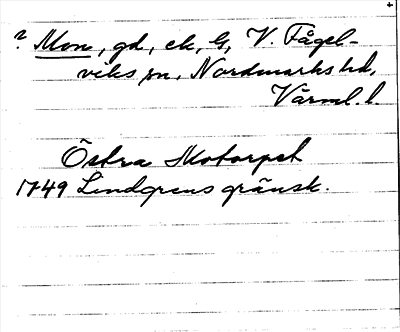 ? Mon, gd, ek, G, V. Fågel-
viks sn, Nordmarks hd,
Värml. l.
Östra Motorpet
1749 Lindgrens gränsk.